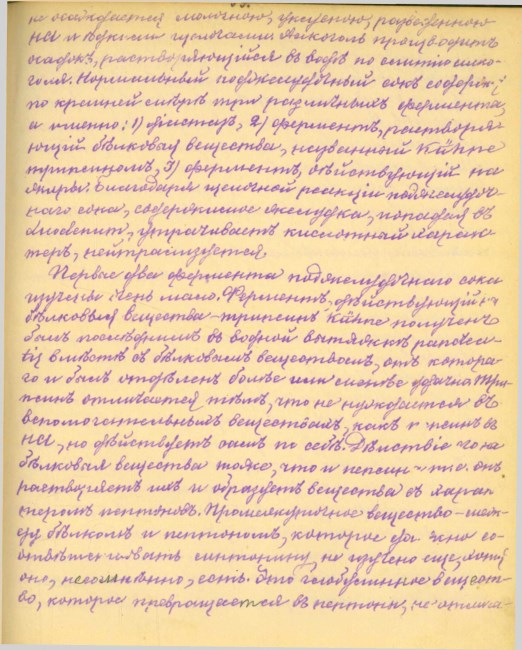 не осаждается молочною, уксусною, разведенною
HCl и едкими щелочами. Алкоголь производитъ
осадокъ, растворяющійся въ водѣ по снятіи алко-
голя. Нормальный поджелудочный сокъ содержитъ
по крайней мѣрѣ три различныхъ фермента,
а именно: 1) діастазъ, 2) ферментъ, растворя-
ющій бѣлковыя вещества, названный Кühne
трипсиномъ, 3) ферментъ, дѣйствующій на
жиры. Благодаря щелочной реакціи поджелудоч-
наго сока, содержимое желудка, попадая въ
duodenum, утрачиваетъ кислотный харак-
теръ, нейтрализуется.
Первые два фермента поджелудочнаго сока
изучены очень мало. Ферментъ, дѣйствующій н
бѣлковыя вещества - трипсинъ Кühne полученъ
былъ послѣднимъ въ водной вытяжкѣ pancrea-
tis вмѣстѣ съ бѣлковымъ веществомъ, отъ котора-
го и былъ отдѣленъ болѣе или менѣе удачно. Три-
псинъ отличается тѣмъ, что не нуждается въ
вспомогательныхъ веществахъ, какъ пепсинъ въ
HCl, но дѣйствуетъ самъ по себѣ. Дѣйствіе его на
бѣлковыя вещества тоже, что и пепсина - т.е. онъ
растворяетъ ихъ и образуетъ вещества съ харак-
теромъ пептоновъ. Промежуточное вещество - меж-
ду бѣлкомъ и пептономъ, которое должно со-
отвѣтствовать синтонину, не изучено еще, хотя
оно, несомнѣнно, есть. Это глобулинное вещест-
во, которое превращается въ пептоны, не отлича-